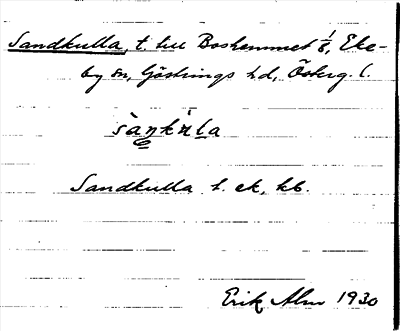 Sandkulla, t. till Boshemmet 1/8, Eke-
by sn, Göstrings hd, Österg. l.
sàŋkùla
Sandkulla h. ek, kb.
Erik Alm 1930